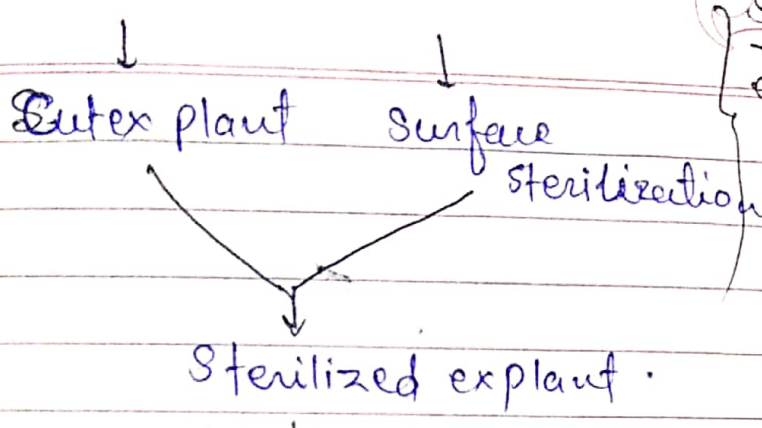 Cut explant surface
sterilization
Sterilized explant.